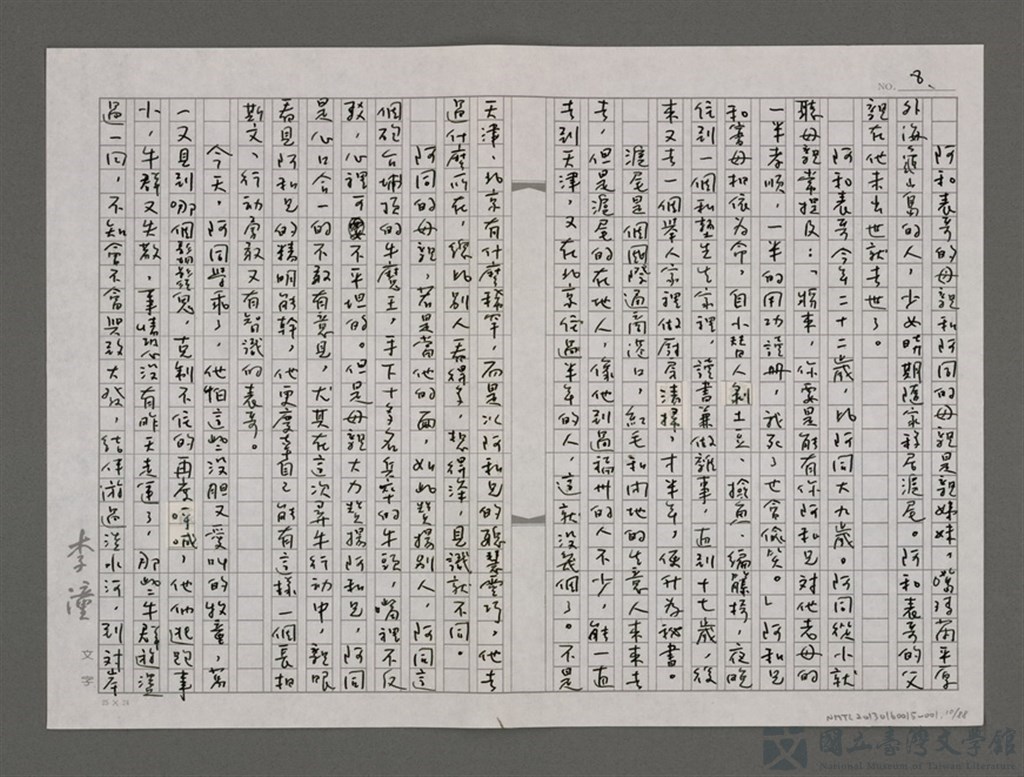 NO. 8、
阿和表哥的母親和阿同的母親是親姊妹,噶瑪蘭平原
外海龜山島的人,少女時期隨家移居滬尾。阿和表哥的父
親在他未出世就去世了。
阿和表哥今年二十二歲,比阿同大九歲。阿同從小就
聽母親常提及:「將來,你要是能有你阿和兄對他老母的
一半孝順,一半的用功讀冊,我死了也會偷笑。」阿和兄
和寡母相依為命,自小替人剝土豆、撿魚、編藤椅,夜晚
往到一個私塾先生家裡,讀書兼做雜事,直到十七歲,後
來又去一個舉人家裡做廚房清掃,才半年,便升為祕書。
滬尾是個國際通商港口,紅毛和閩地的生意人來來去
去,但是滬尾的在地人,像他到過福州的人不少,能一直
去到天津,又在北京住過半年的人,這就沒幾個了。不是
天津、北京有什麼稀罕,而是以阿和兄的聰慧靈巧,他去
過什麼所在,總比別人看得多,想得深,見識就不同。
阿同的母親,若是當他的面,如此贊揚別人,阿同這
個砲台埔頂的牛魔王,手下十多名兵卒的牛頭,嘴裡不反
駁,心裡可不平坦的。但是母親大力贊揚阿和兄,阿同
是心口合一的不敢有意見,尤其在這次尋牛行動中,親眼
看見阿和兄的精明能幹,他更慶幸自己能有這樣一個長相
斯文、行動勇敢又有智識的表哥。
今天,阿同學乖了,他怕這些沒胆又愛叫的牧童,萬
一又見到哪個髒髒鬼,克制不住的再度呼喊,他們逃跑事
小,牛群又失散,事情恐沒有昨天走運了,那些牛群游過
過一回,不知會不會興致大發,結伴游過淡水河,到對岸
李潼
文字
25×24
NMTL20130160015-001.10/88
國立臺灣文學館
National Museum of Taiwan Literature